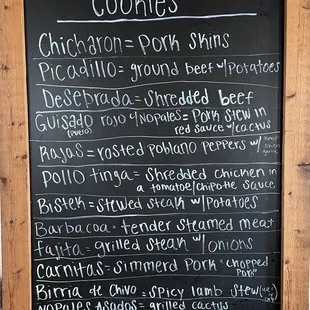 COOKIES
Chicharon = Pork Skins
Picadillo = ground beef w/ Potatoes
Desebrada = Shredded beef
Guisado rojo w/ Nopales = Pork Stew in
(Puerco) red sauce w/ cactus
Rajas = rosted poblano peppers w/
Pollo tinga = Shredded chicken in
a tomatoe/chipotle sauce
Bistek = stewed steak w/ Potatoes
Barbacoa = tender steamed meat
fajita = grilled steak w/ onions
Carnitas = Simmerd Pork "chopped
Pork"
Birria de Chivo = spicy lamb stew
Nopales Asados = grilled cactus